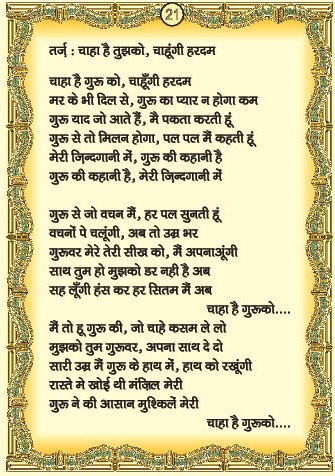 21
तर्ज़ : चाहा है तुझको, चाहूंगी हरदम
चाहा है गुरू को, चाहूँगी हरदम
मर के भी दिल से, गुरू का प्यार न होगा कम
गुरू याद जो आते हैं, मै पकता करती हूं
गुरू से तो मिलन होगा, पल पल मैं कहती हूं
मेरी ज़िन्दगानी में, गुरू की कहानी है
गुरू की कहानी है, मेरी ज़िन्दगानी में
गुरू से जो वचन मैं, हर पल सुनती हूं
वचनों पे चलूंगी, अब तो उम्र भर
गुरूवर मेरे तेरी सीख को, मैं अपनाअूंगी
साथ तुम हो मुझको डर नही है अब
सह लूँगी हंस कर हर सितम मैं अब
चाहा है गुरूको....
मैं तो हू गुरू की, जो चाहे कसम ले लो
मुझको तुम गुरूवर, अपना साथ दे दो
सारी उम्र मैं गुरू के हाथ में, हाथ को रखूंगी
रास्ते मे खोई थी मंज़िल मेरी
गुरू ने की आसान मुश्किलें मेरी
चाहा है गुरूको....